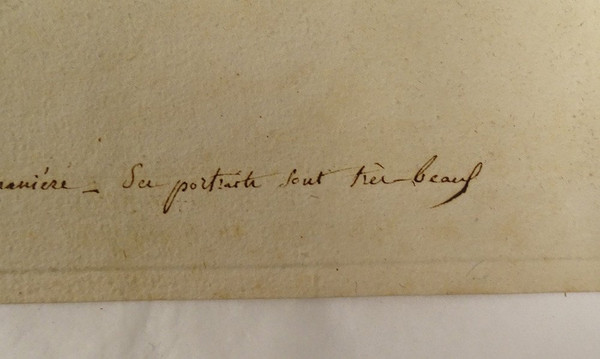 maniéré – Ses portraits sont très-beaux